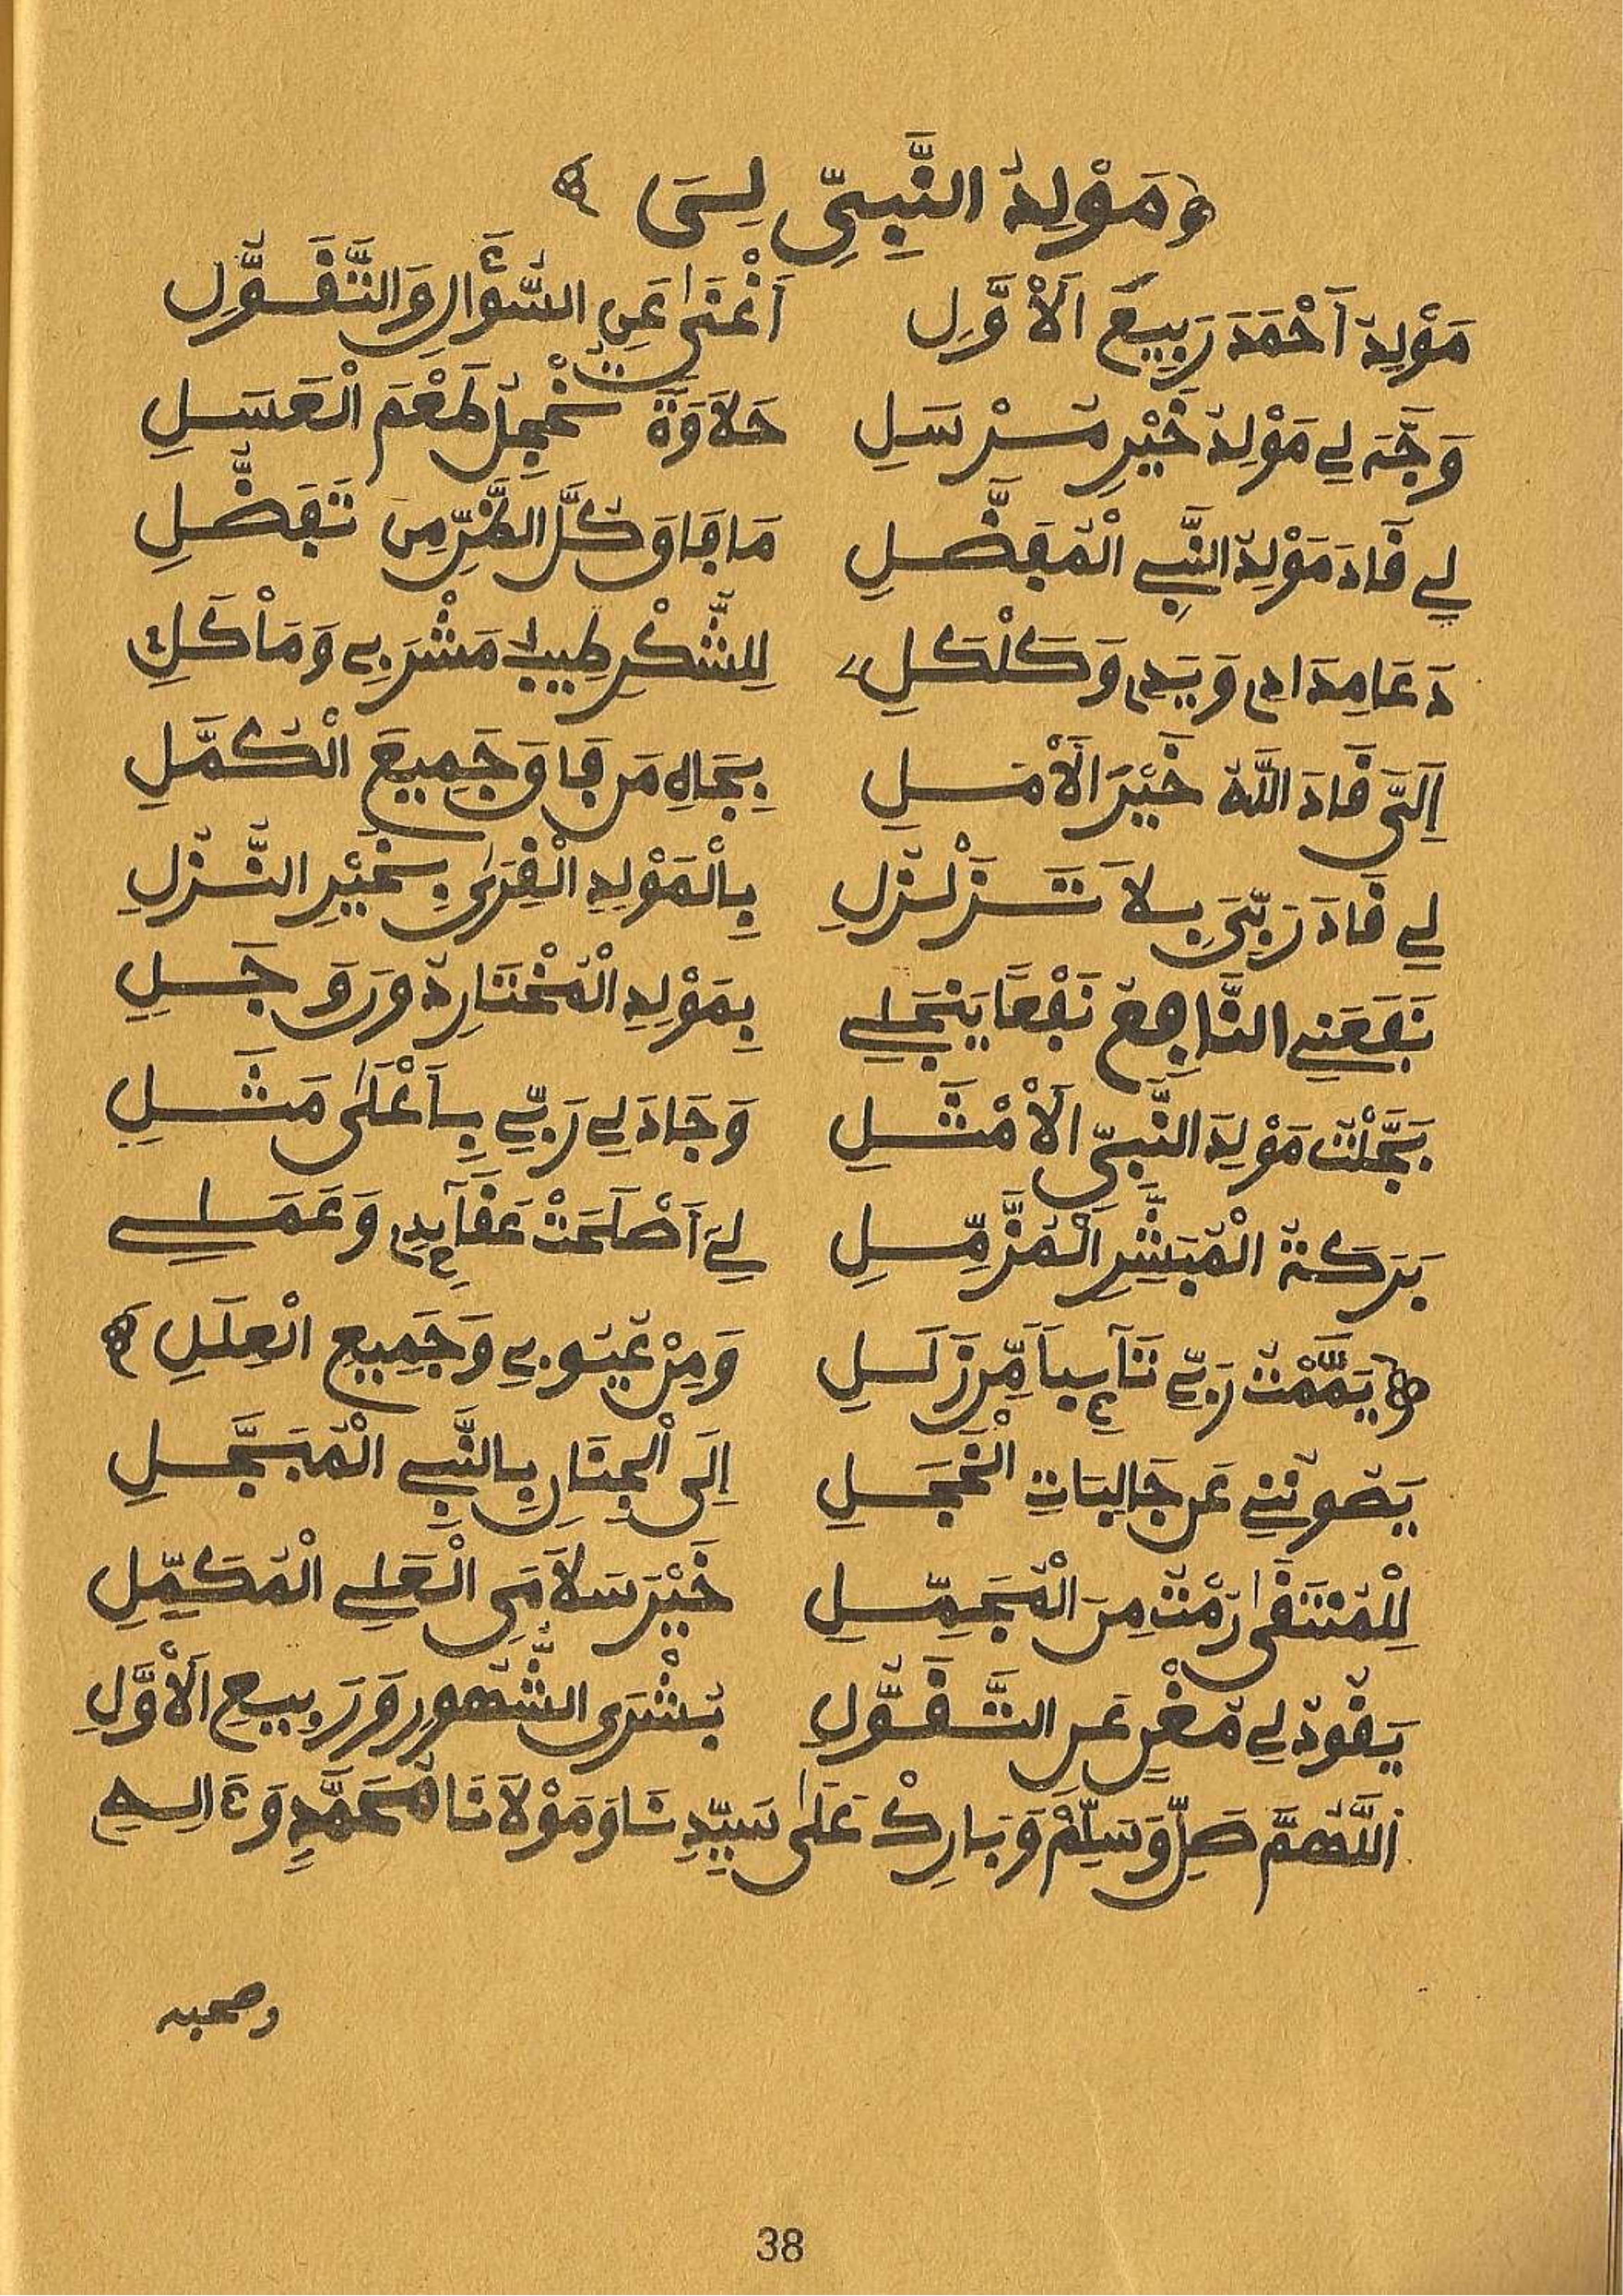 مَوْلِدُ النَّبِيِّ لِسَى
مَوْلِدُ أَحْمَدَ رَبِيعَ الَاوَّلِ أَغْنَى عَنِ السُّؤَالِ وَالتَّقَوُّلِ
وَجَّهَ لِي مَوْلِدُ خَيْرِ مُرْسَلِ حَلَاوَةً تُخْجِلُ طَعْمَ الْعَسَلِ
لِي قَادَ مَوْلِدُ النَّبِي الْمُفَضَّلِ مَا فَاقَ كُلَّ الظَّنِّ مِنْ تَفَضُّلِ
دَعَا مِدَادِي وَيَدِي وَكَلْكَلِ لِلشُّكْرِ طِيبَا مَشْرَبِي وَمَأْكَلِ
إِلَيَّ قَادَ اللَّهُ خَيْرَ الَأمَلِ بِجَاهِ مَن فَاقَ جَمِيعَ الْكُمَّلِ
لِي قَادَ رَبِّيَ بِلَا تَزَلْزُلِ بِالْمَوْلِدِ الْقِرَى بِخَيْرِ النُّزُلِ
نَفَعَنِي النَّافِعُ نَفْعًا يَنْجَلِي بِمَوْلِدِ الْمُخْتَارِ دُونَ وَجَلِ
بَجَّلْتُ مَوْلِدَ النَّبِيِّ الَأمْثَلِ وَجَادَ لِي رَبِّي بِأَعْلَى مَثَلِ
بَرَكَةُ الْمُبَشَّرِ الْمُزَّمِّلِ لِيَ أَصْلَحَتْ عَقَآئِدِي وَعَمَلِي
يَمَّمْتُ رَبِّي تَآئِباً مِّن زَلَلِ وَمِنْ عُيُوبِي وَجَمِيعِ الْعِلَلِ
يَصُونُنِي عَن جَالِبَاتِ الْخَجَلِ إِلَى الْجِنَانِ بِالنَّبِي الْمُبَجَّلِ
لِلْمُنْتَقَى رُمْتُ مِنَ الْمُجَمِّلِ خَيْرَ سَلَامَيِ الْعَلِي الْمُكَمِّلِ
يَقُودُ لِي مُغْنٍ عَنِ التَّقَوُّلِ بُشْرَى الشُّهُورِ وَرَبِيعِ الَأوَّلِ
اللَّهُمَّ صَلِّ وَسَلِّمْ وَبَارِكْ عَلَى سَيِّدِنَا وَمَوْلَانَا مُحَمَّدٍ وَءَالِهِ
وصحبه
38